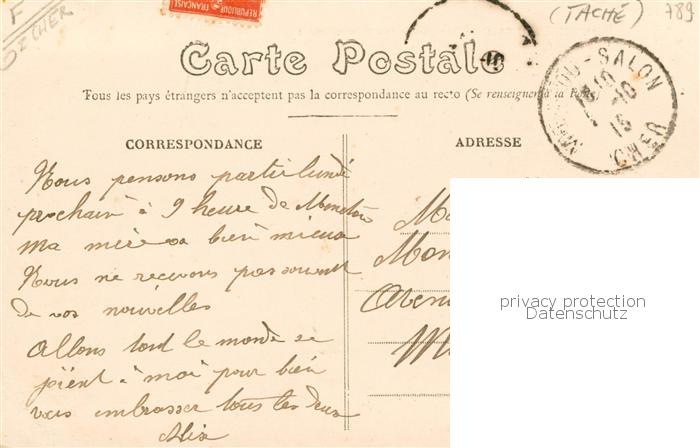 F
CHER
REPUBLIQUE FRANÇAISE
10
(TACHÉ) 789
Carte Postale
Tous les pays étrangers n'acceptent pas la correspondance au recto (Se renseigner à la Pos
CORRESPONDANCE
Nous pensons partir lundi
prochain à 9 heure de
Ma mère va bien mieux
Nous ne recevons pas souvent
de vos nouvelles
Allons tout le monde se
joient à moi pour bien
vous embrasser tous les deux
Alix
ADRESSE
-SALON
18 10
-10
15
CHER
M
Mon
Aven
M
privacy protection
Datenschutz